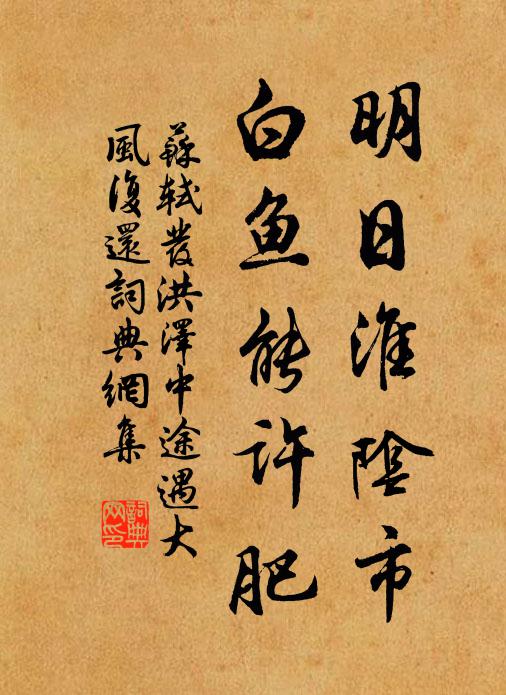 明日淮陰市
白鱼能许肥
蘇軾發洪澤中途遇大
風復還詞典網集
詞典
网印